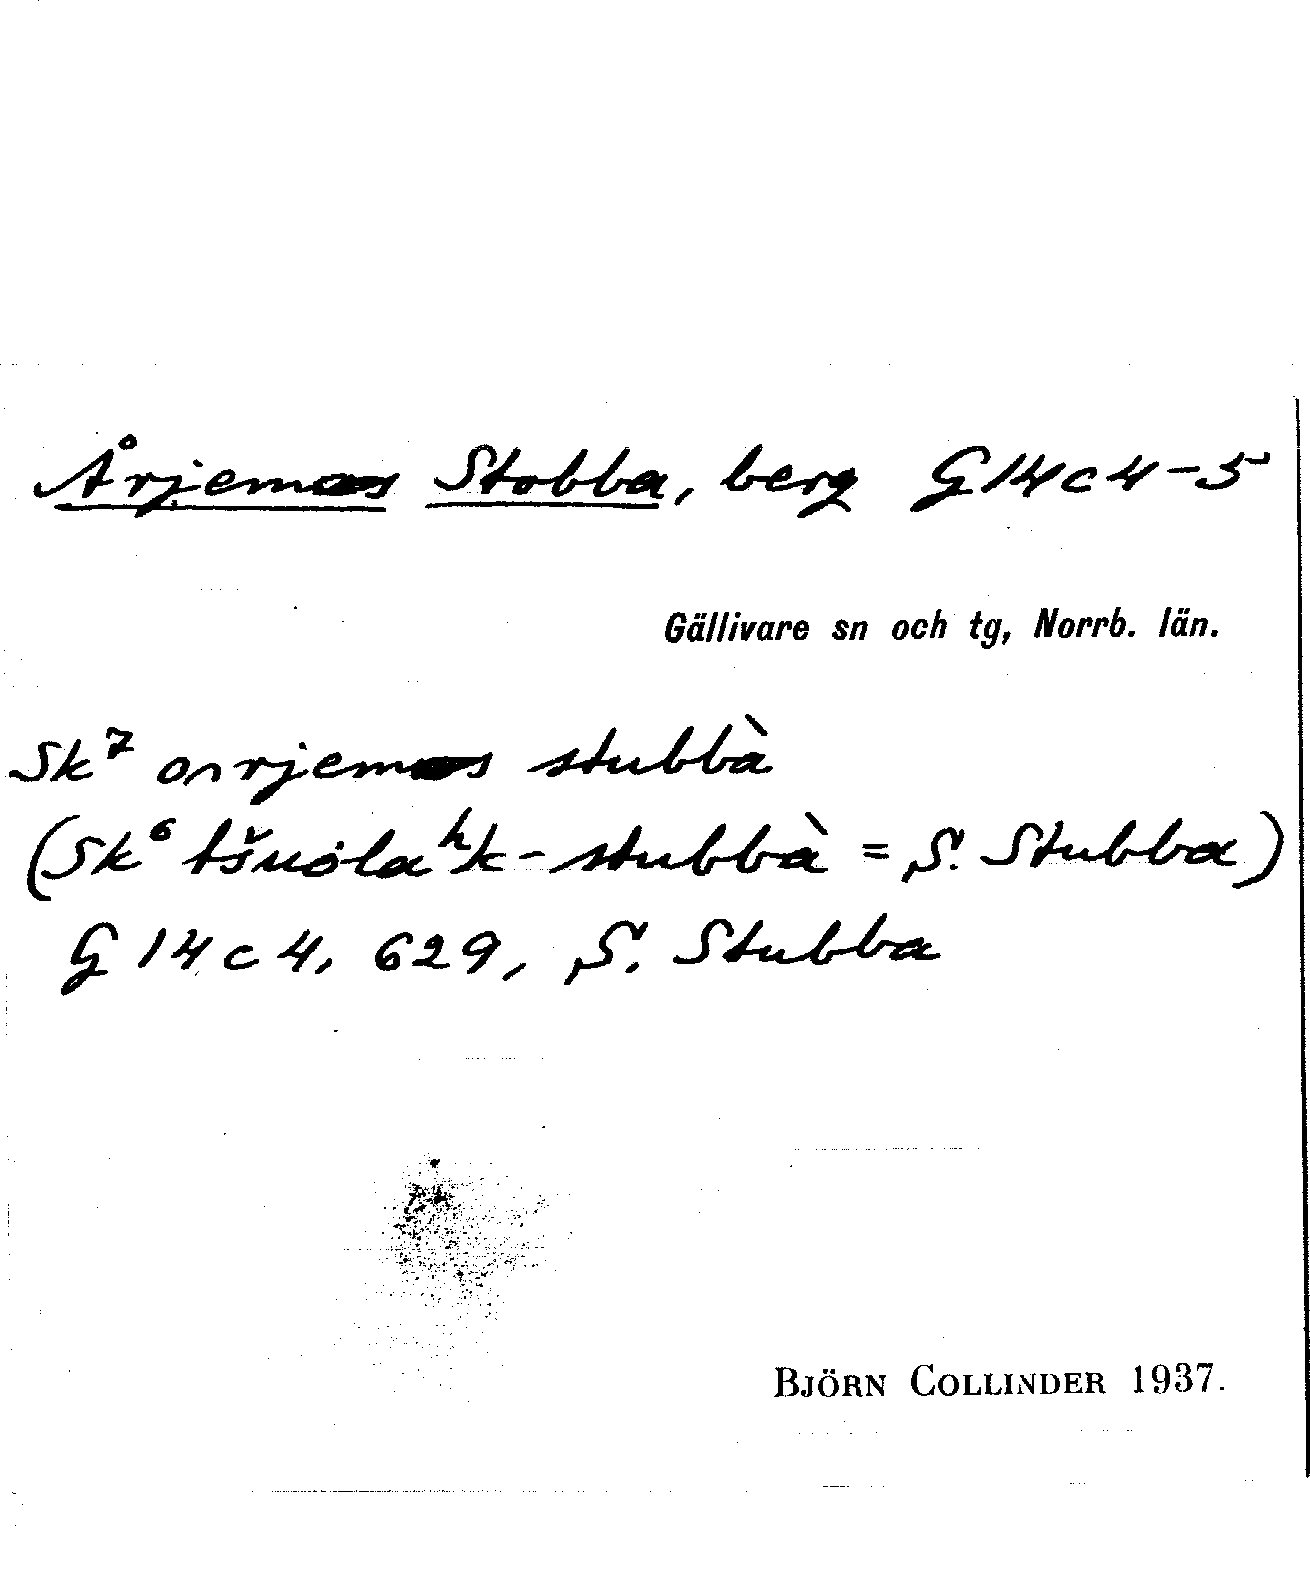 Årjemas Stobba, berg G14c4-5
Gällivare sn och tg, Norrb. län.
Sk⁷ oᴖrjemas stubbà
(Sk⁶ tšuȯlaʰk-stubbà = S. Stubba)
G 14 c 4, 629, S. Stubba
BJÖRN COLLINDER 1937.